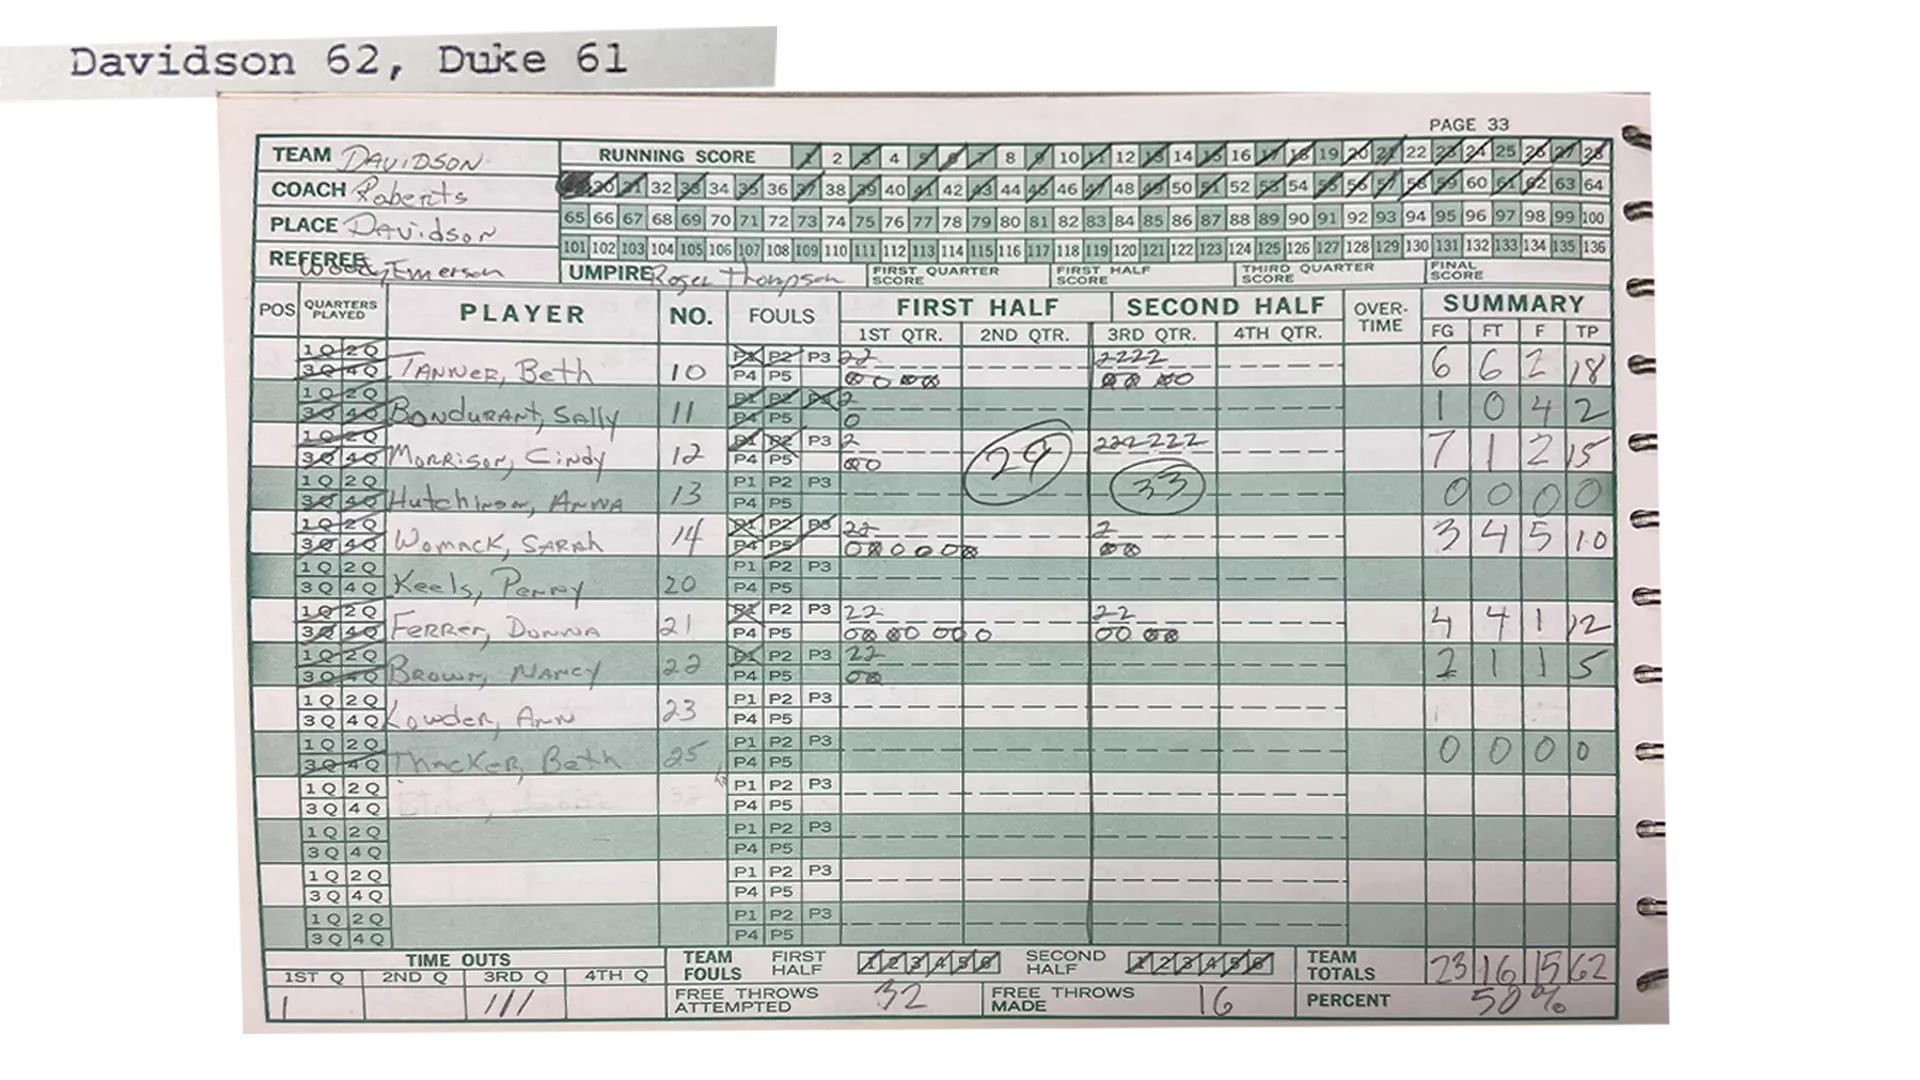 Davidson 62, Duke 61
PAGE 33
TEAM DAVIDSON
RUNNING SCORE 1 2 3 4 5 6 7 8 9 10 11 12 13 14 15 16 17 18 19 20 21 22 23 24 25 26 27 28
COACH Roberts
29 30 31 32 33 34 35 36 37 38 39 40 41 42 43 44 45 46 47 48 49 50 51 52 53 54 55 56 57 58 59 60 61 62 63 64
PLACE Davidson
65 66 67 68 69 70 71 72 73 74 75 76 77 78 79 80 81 82 83 84 85 86 87 88 89 90 91 92 93 94 95 96 97 98 99 100
101 102 103 104 105 106 107 108 109 110 111 112 113 114 115 116 117 118 119 120 121 122 123 124 125 126 127 128 129 130 131 132 133 134 135 136
REFEREE Woody Emerson
UMPIRE Roger Thompson
FIRST QUARTER SCORE
FIRST HALF SCORE
THIRD QUARTER SCORE
FINAL SCORE
POS QUARTERS PLAYED PLAYER NO. FOULS FIRST HALF SECOND HALF OVER-TIME SUMMARY
1ST QTR. 2ND QTR. 3RD QTR. 4TH QTR. FG FT F TP
1Q 2Q 3Q 4Q TANNER, Beth 10 P1 P2 P3 P4 P5 22 2222 6 6 2 18
1Q 2Q 3Q 4Q BONDURANT, SALLY 11 P1 P2 P3 P4 P5 2 1 0 4 2
1Q 2Q 3Q 4Q MORRISON, CINDY 12 P1 P2 P3 P4 P5 2 222222 7 1 2 15
29 33
1Q 2Q 3Q 4Q Hutchinson, ANNA 13 P1 P2 P3 P4 P5 0 0 0 0
1Q 2Q 3Q 4Q WOMACK, SARAH 14 P1 P2 P3 P4 P5 22 2 3 4 5 10
1Q 2Q 3Q 4Q Keels, Penny 20 P1 P2 P3 P4 P5
1Q 2Q 3Q 4Q FERRER, DONNA 21 P1 P2 P3 P4 P5 22 22 4 4 1 12
1Q 2Q 3Q 4Q BROWN, NANCY 22 P1 P2 P3 P4 P5 22 2 1 1 5
1Q 2Q 3Q 4Q Lowder, Ann 23 P1 P2 P3 P4 P5
1Q 2Q 3Q 4Q THACKER, Beth 25 P1 P2 P3 P4 P5 0 0 0 0
1Q 2Q 3Q 4Q P1 P2 P3 P4 P5
1Q 2Q 3Q 4Q P1 P2 P3 P4 P5
1Q 2Q 3Q 4Q P1 P2 P3 P4 P5
1Q 2Q 3Q 4Q P1 P2 P3 P4 P5
TIME OUTS
1ST Q 2ND Q 3RD Q 4TH Q
1 111
TEAM FOULS FIRST HALF 1 2 3 4 5 6 SECOND HALF 1 2 3 4 5 6
TEAM TOTALS 23 16 15 62
FREE THROWS ATTEMPTED 32
FREE THROWS MADE 16
PERCENT 50%